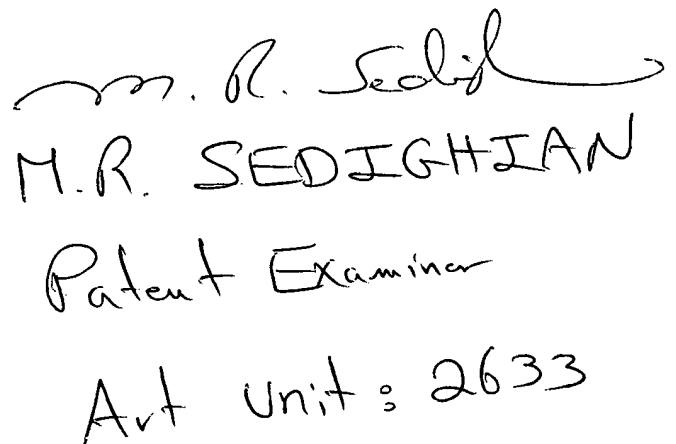 M. R. Sedigh
M.R. SEDIGHIAN
Patent Examiner
Art Unit : 2633